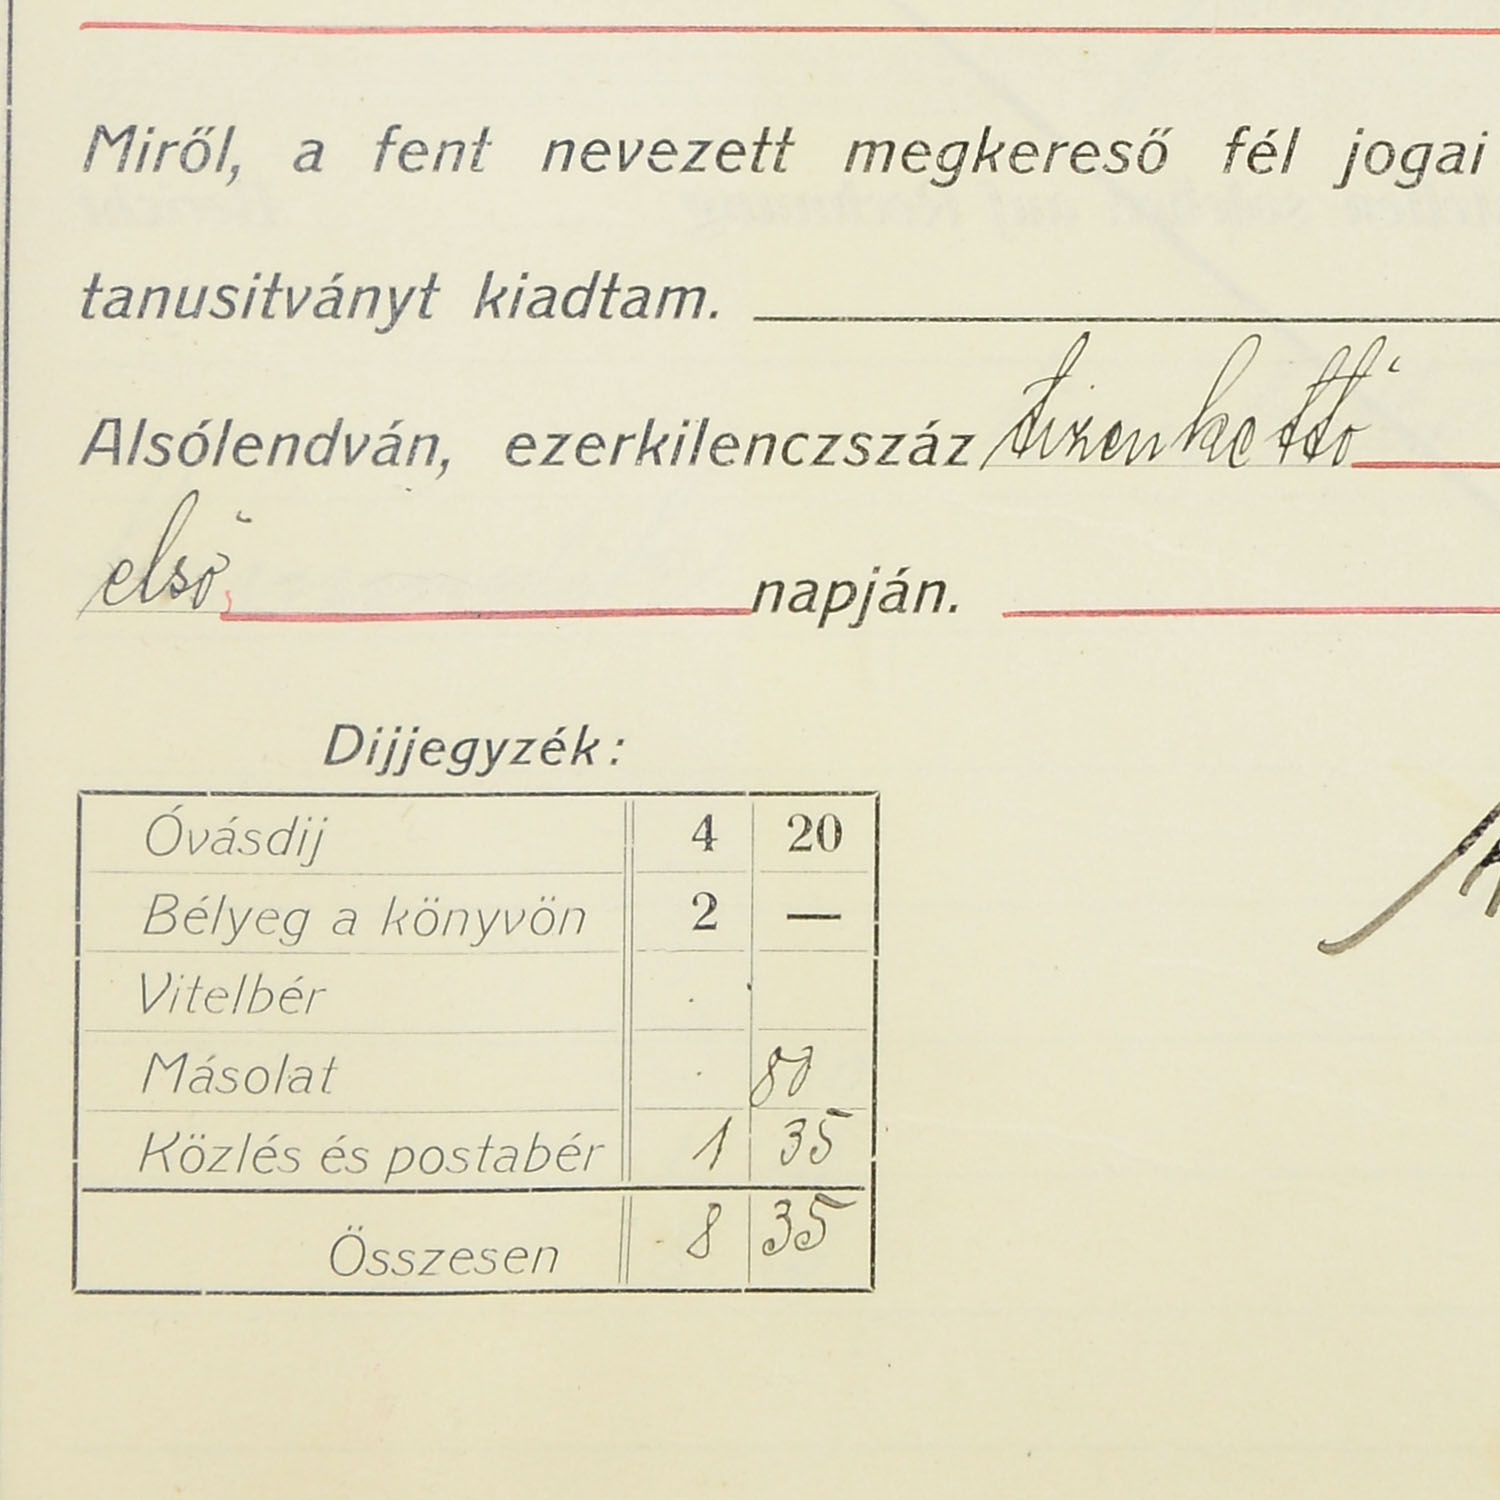 Miről, a fent nevezett megkereső fél jogai
tanusitványt kiadtam.
Alsólendván, ezerkilenczszáz tizenkettő
első napján.
Dijjegyzék:
Óvásdij 4 20
Bélyeg a könyvön 2 —
Vitelbér
Másolat 80
Közlés és postabér 1 35
Összesen 8 35